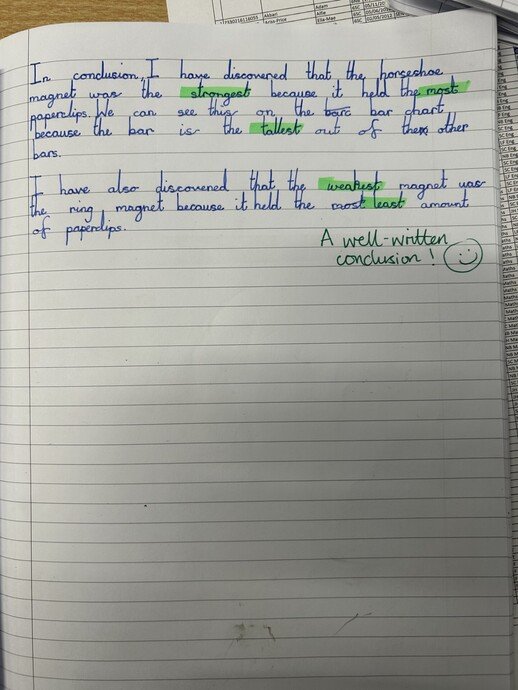 Akbari
Arlas-Price
Adam
Alfie
Ella-Mae
In conclusion, I have discovered that the horseshoe
magnet was the strongest because it held the most
paperclips. We can see this on the bar chart
because the bar is the tallest out of the other
bars.
I have also discovered that the weakest magnet was
the ring magnet because it held the most least amount
of paperclips.
A well-written
conclusion!